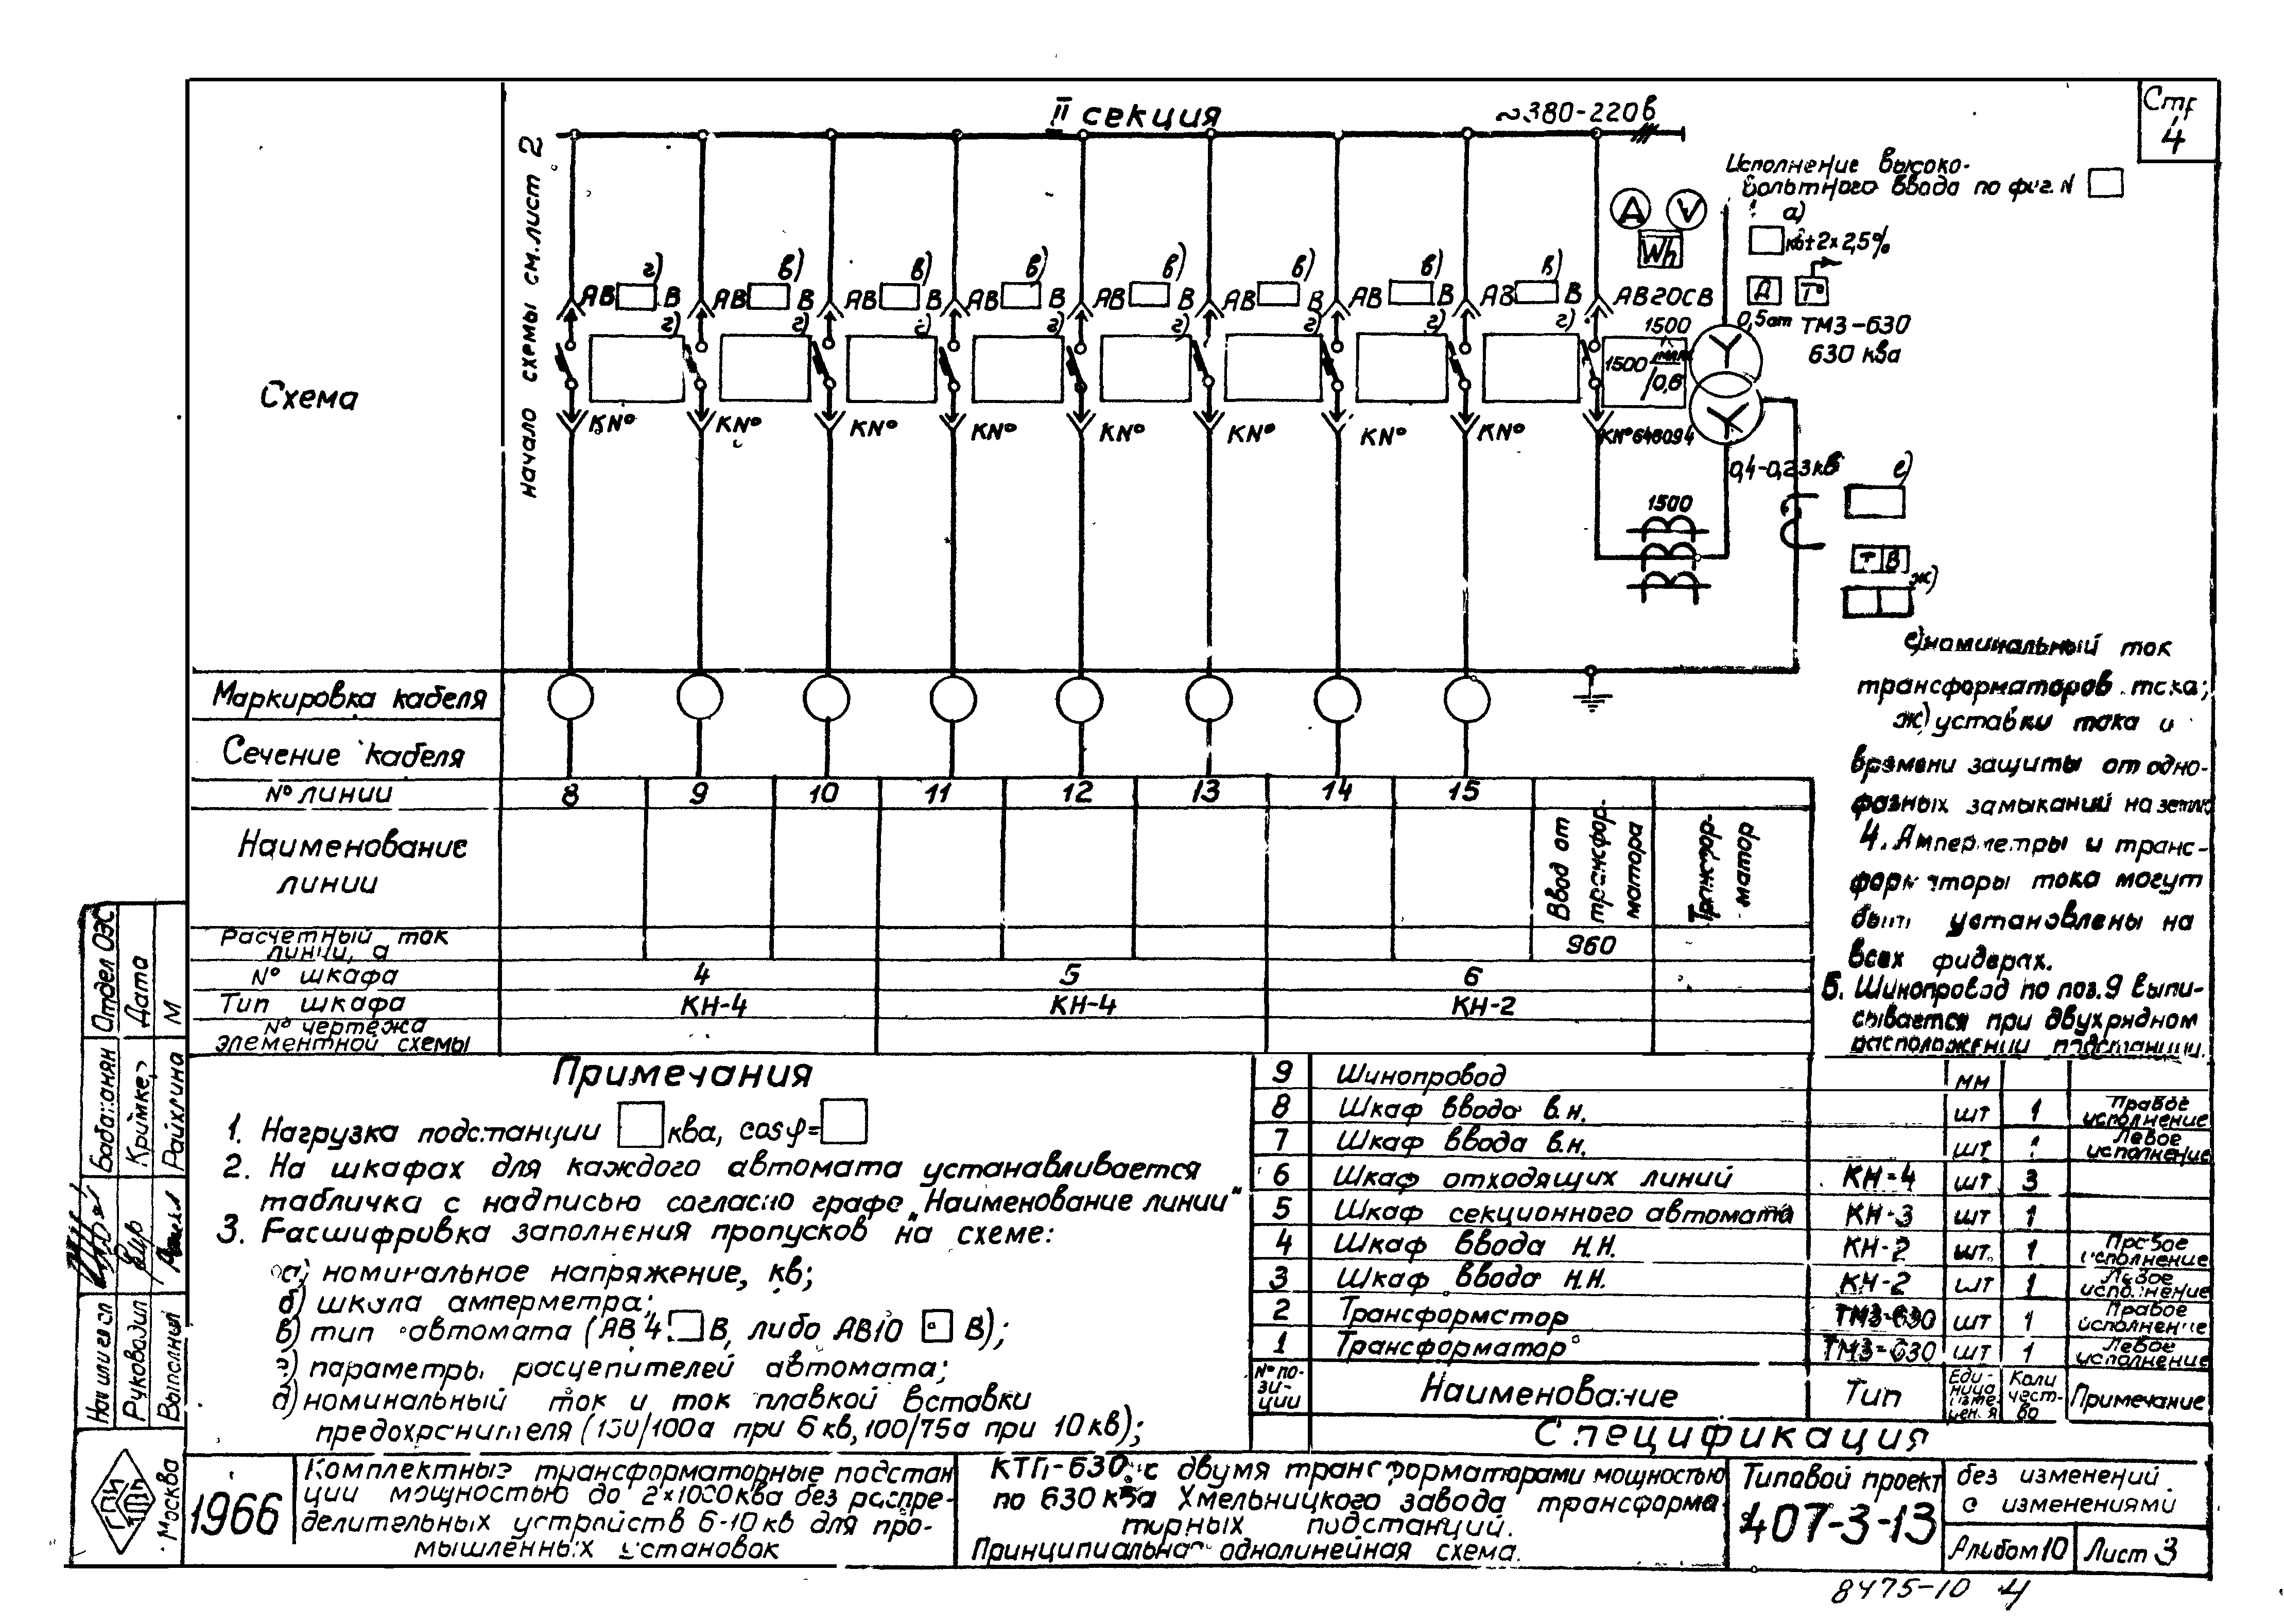 Стр
4
II секция
~380-220в
начало схемы см. лист 2
Исполнение высоко-
вольтного ввода по фиг. N
а)
кв±2×2,5%
A V
Wh
Д T°
г) в) в) в) в) в) в) в)
АВ В АВ В АВ В АВ В АВ В АВ В АВ В АВ В АВ20СВ
г) г) г) г) г) г) г) г)
1500
1500
/0,6
0,5 ат ТМЗ-630
630 ква
Схема
KN° KN° KN° KN° KN° KN° KN° KN° KN°646094
0,4-0,23кв
е)
1500
Т В
ж)
е) номинальный ток
трансформаторов тока;
ж) уставки тока и
времени защиты от одно-
фазных замыканий на землю
4. Амперметры и транс-
форматоры тока могут
быть установлены на
всех фидерах.
5. Шинопровод по поз.9 выпи-
сывается при двухрядном
расположении подстанции.
Маркировка кабеля
Сечение кабеля
N° линии 8 9 10 11 12 13 14 15
Наименование
линии
Ввод от
трансфор-
матора
Трансфор-
матор
Расчетный ток
линии, а 960
N° шкафа 4 5 6
Тип шкафа КН-4 КН-4 КН-2
N° чертежа
элементной схемы
Примечания
1. Нагрузка подстанции ква, cosφ=
2. На шкафах для каждого автомата устанавливается
табличка с надписью согласно графе „Наименование линии"
3. Расшифровка заполнения пропусков на схеме:
а) номинальное напряжение, кв;
б) шкала амперметра;
в) тип автомата (АВ4 В, либо АВ10 В);
г) параметры расцепителей автомата;
д) номинальный ток и ток плавкой вставки
предохранителя (150/100а при 6кв, 100/75а при 10кв);
9 Шинопровод мм
8 Шкаф ввода в.н. шт 1 Правое исполнение
7 Шкаф ввода в.н. шт 1 Левое исполнение
6 Шкаф отходящих линий КН-4 шт 3
5 Шкаф секционного автомата КН-3 шт 1
4 Шкаф ввода н.н. КН-2 шт. 1 Правое исполнение
3 Шкаф ввода н.н. КН-2 шт 1 Левое исполнение
2 Трансформатор ТМЗ-630 шт 1 Правое исполнение
1 Трансформатор ТМЗ-630 шт 1 Левое исполнение
N° по-
зи-
ции
Наименование Тип
Еди-
ница
изме-
рения
Коли
чест-
во
Примечание
Спецификация
Отдел ОЭС
Дата
М
Бабаханян
Кримкер
Райхлина
Нач. отдел
Руководил
Выполнил
ГПИ
ТПЭП
Москва
1966
Комплектные трансформаторные подстан
ции мощностью до 2×1000ква без распре-
делительных устройств 6-10кв для про-
мышленных установок
КТП-630 с двумя трансформаторами мощностью
по 630 ква Хмельницкого завода трансформа
торных подстанций.
Принципиальная однолинейная схема.
Типовой проект
407-3-13
без изменений
с изменениями
Альбом 10
Лист 3
8475-10 4